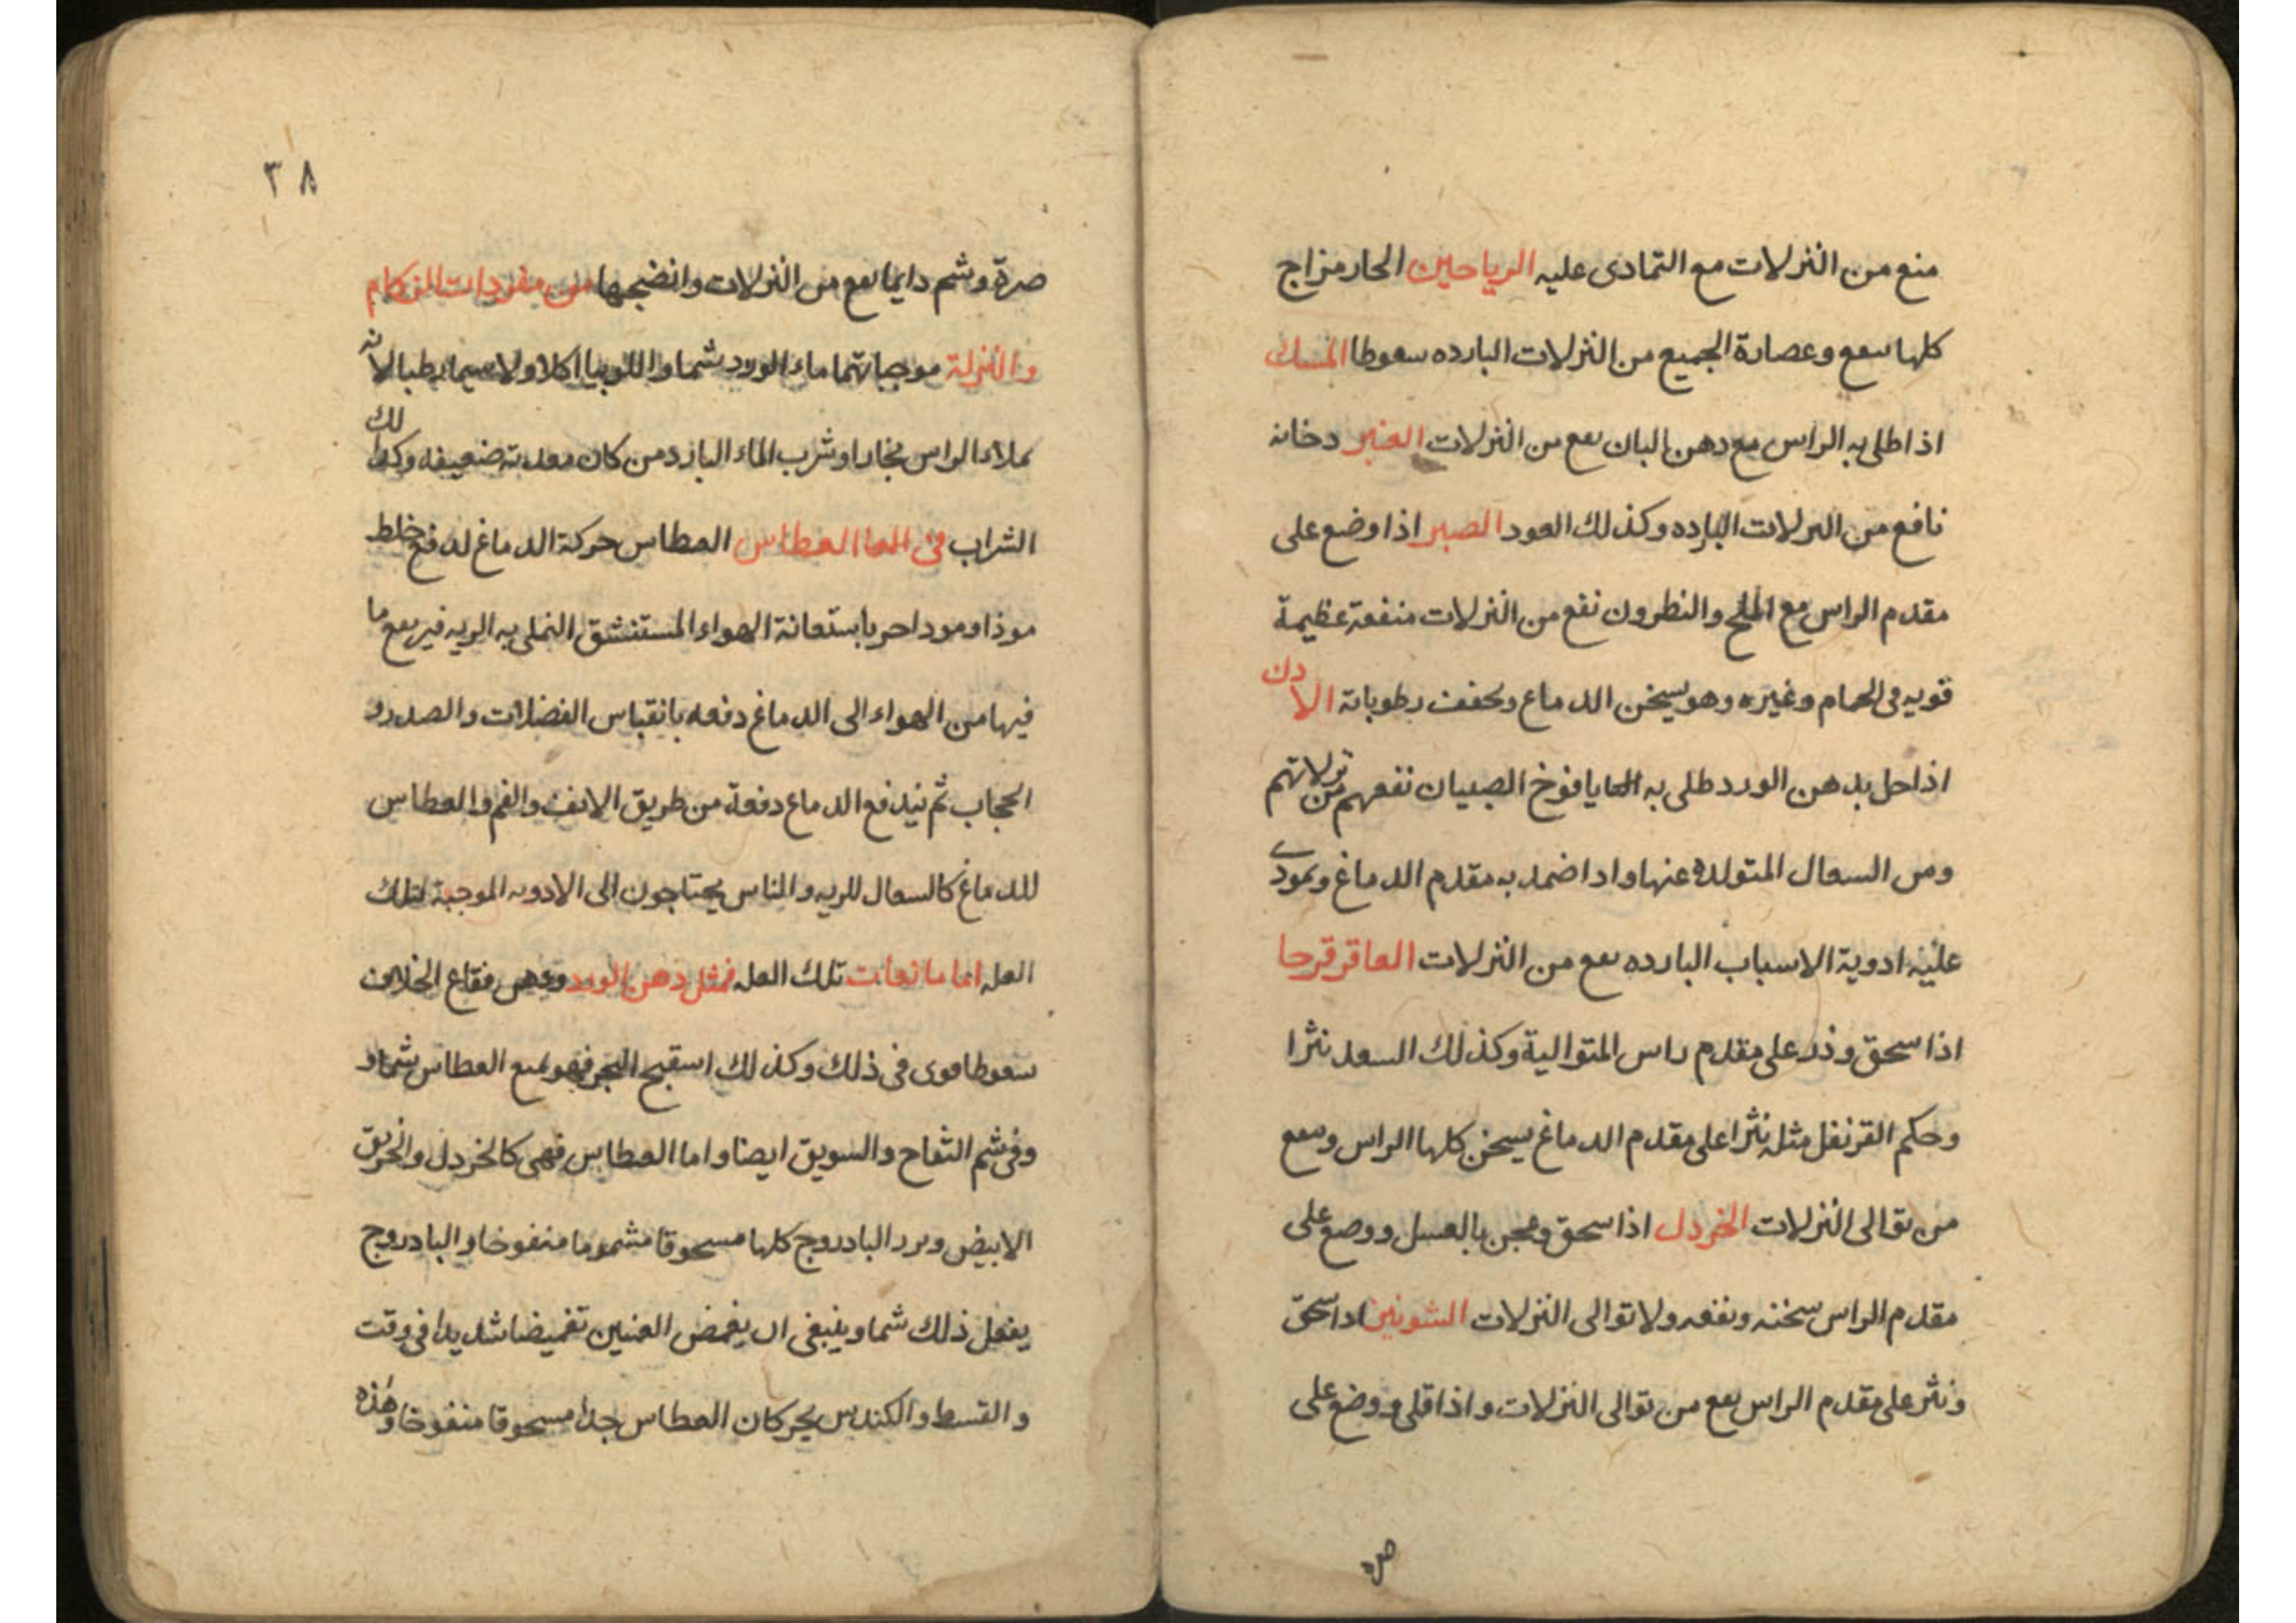 منع من النزلات مع التمادى عليه الرياحين الحار مزاج
كلها سعع وعصارة الجميع من النزلات البارده سعوطا المسك
اذا طلى به الراس مع دهن البان سعع من النزلات العنبر دخانه
نافع من النزلات البارده وكذلك العود الصبر اذا وضع على
مقدم الراس مع الملح والنطرون نفع من النزلات منفعة عظيمة
قويه فى الحمام وغيره وهو يسخن الدماغ ويحفف رطوباته الادن
اذا حل بدهن الورد طلى به يافوخ الصبيان نفعهم من نزلاتهم
ومن السعال المتولده عنها واذا ضمد به مقدم الدماغ
عليه ادوية الاسباب البارده سعع من النزلات العاقرقرحا
اذا سحق وذر على مقدم راس المتوالية وكذلك السعد نثرا
وحكم القرنفل مثله نثرا على مقدم الدماغ يسخن كلها الراس وسعع
من توالى النزلات الخردل اذا سحق وعجن بالعسل ووضع على
مقدم الراس سخنه ونفعه ولا توالى النزلات الشونيز اذا سحق
ونثر على مقدم الراس سعع من توالى النزلات واذا قلى ووضع على
صره
٣٨
صرة وشم دايما سعع من النزلات وانضجها من مفردات الزكام
والنزلة موجباتهما ماء الورد شما واللوبيا اكلا ولا سيما رطبا لانه
يملاء الراس بخارا وشرب الماء البارد من كان معدته ضعيفه وكذلك
الشراب فى العطاس العطاس حركة الدماغ لدفع خلط
موذ او موذ احر باستعانة الهواء المستنشق به الريه فيرىفع ما
فيها من الهواء الى الدماغ دفعه بانقباس الفضلات والصدر و
الحجاب ثم يندفع الدماغ دفعة من طريق الانف والفم والعطاس
للدماغ كالسعال للريه والناس يحتاجون الى الادويه الموجبة لتلك
العله اما مانعات تلك العله فمثل دهن الورد ودهن فقاع الخلاف
سعوطا قوى فى ذلك وكذلك البحر فهو يمنع العطاس شما و
وفى شم التفاح والسويق ايضا واما العطاس فهى كالخردل والخربق
الابيض وبزر البادروج كلها مسحوقا مشموما منفوخا والبادروج
يفعل ذلك شما وينبغى ان يغمض العينين تغميضا شديدا فى وقت
والقسط والكندس يحركان العطاس جدا مسحوقا منفوخا وهذه